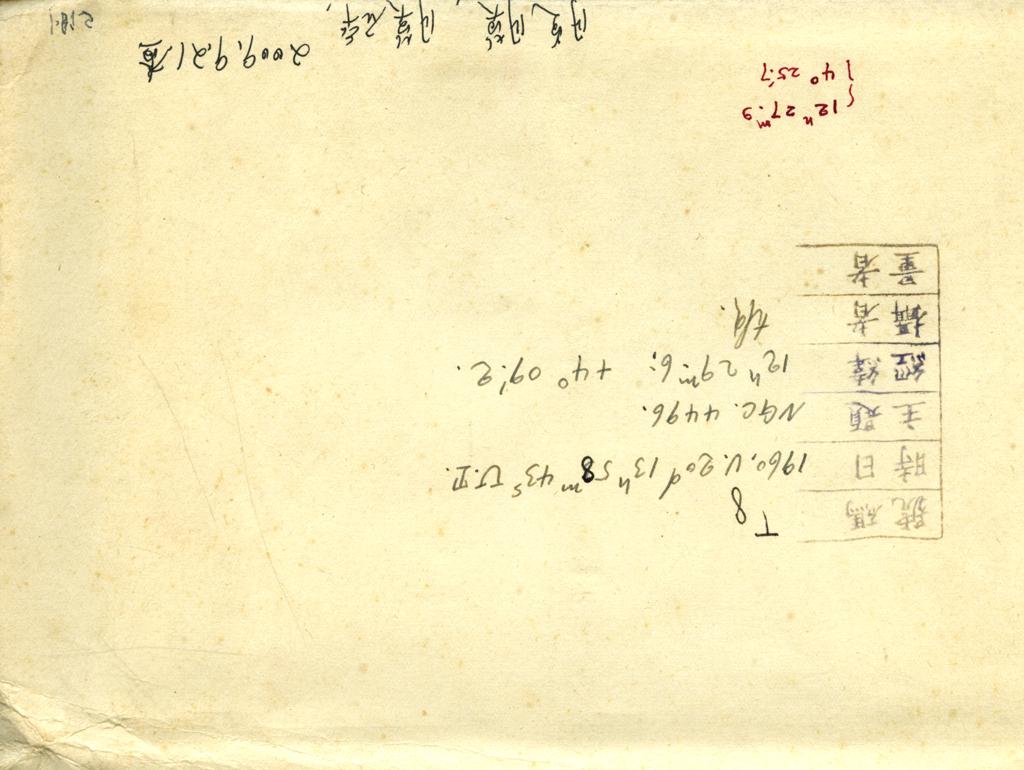 號碼 T8
時日 1960, V. 20ᵈ 13ʰ 58ᵐ 43ˢ U.T.
主題 NGC. 4496.
經緯 12ʰ 29ᵐ6; +4° 09'.2.
攝者
量者
12ʰ 27ᵐ.9
4° 25'.7
2009.9.21查